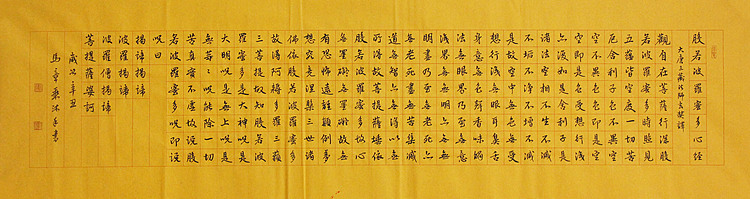 般若波羅蜜多心經
大唐三藏法師玄奘譯
觀自在菩薩行深般
若波羅蜜多時照見
五蘊皆空度一切苦
厄舍利子色不異空
空不異色色即是空
空即是色受想行識
亦復如是舍利子是
諸法空相不生不滅
不垢不淨不增不減
是故空中無色無受
想行識無眼耳鼻舌
身意無色聲香味觸
法無眼界乃至無意
識界無無明亦無無
明盡乃至無老死亦
無老死盡無苦集滅
道無智亦無得以無
所得故菩提薩埵依
般若波羅蜜多故心
無罣礙無罣礙故無
有恐怖遠離顛倒夢
想究竟涅槃三世諸
佛依般若波羅蜜多
故得阿耨多羅三藐
三菩提故知般若波
羅蜜多是大神咒是
大明咒是無上咒是
無等々咒能除一切
苦真實不虛故說般
若波羅蜜多咒即說
咒曰
揭諦揭諦
波羅揭諦
波羅僧揭諦
菩提薩婆訶
歲次辛丑
馬東沐手書